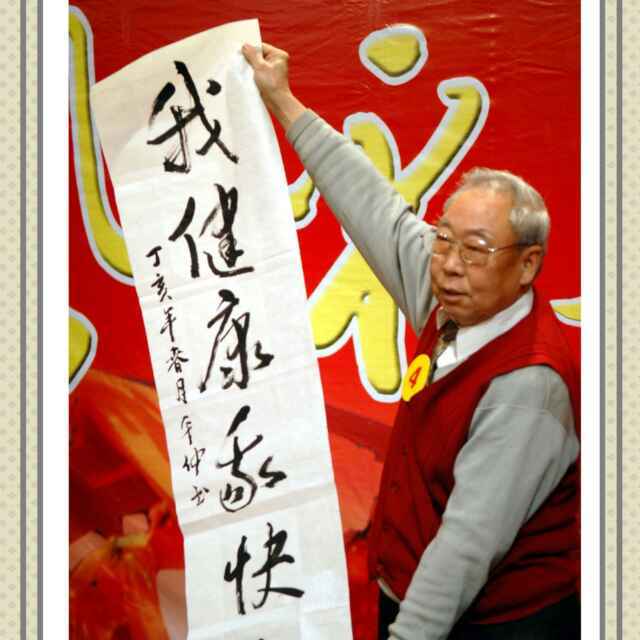 我健康我快
丁亥年春月
4